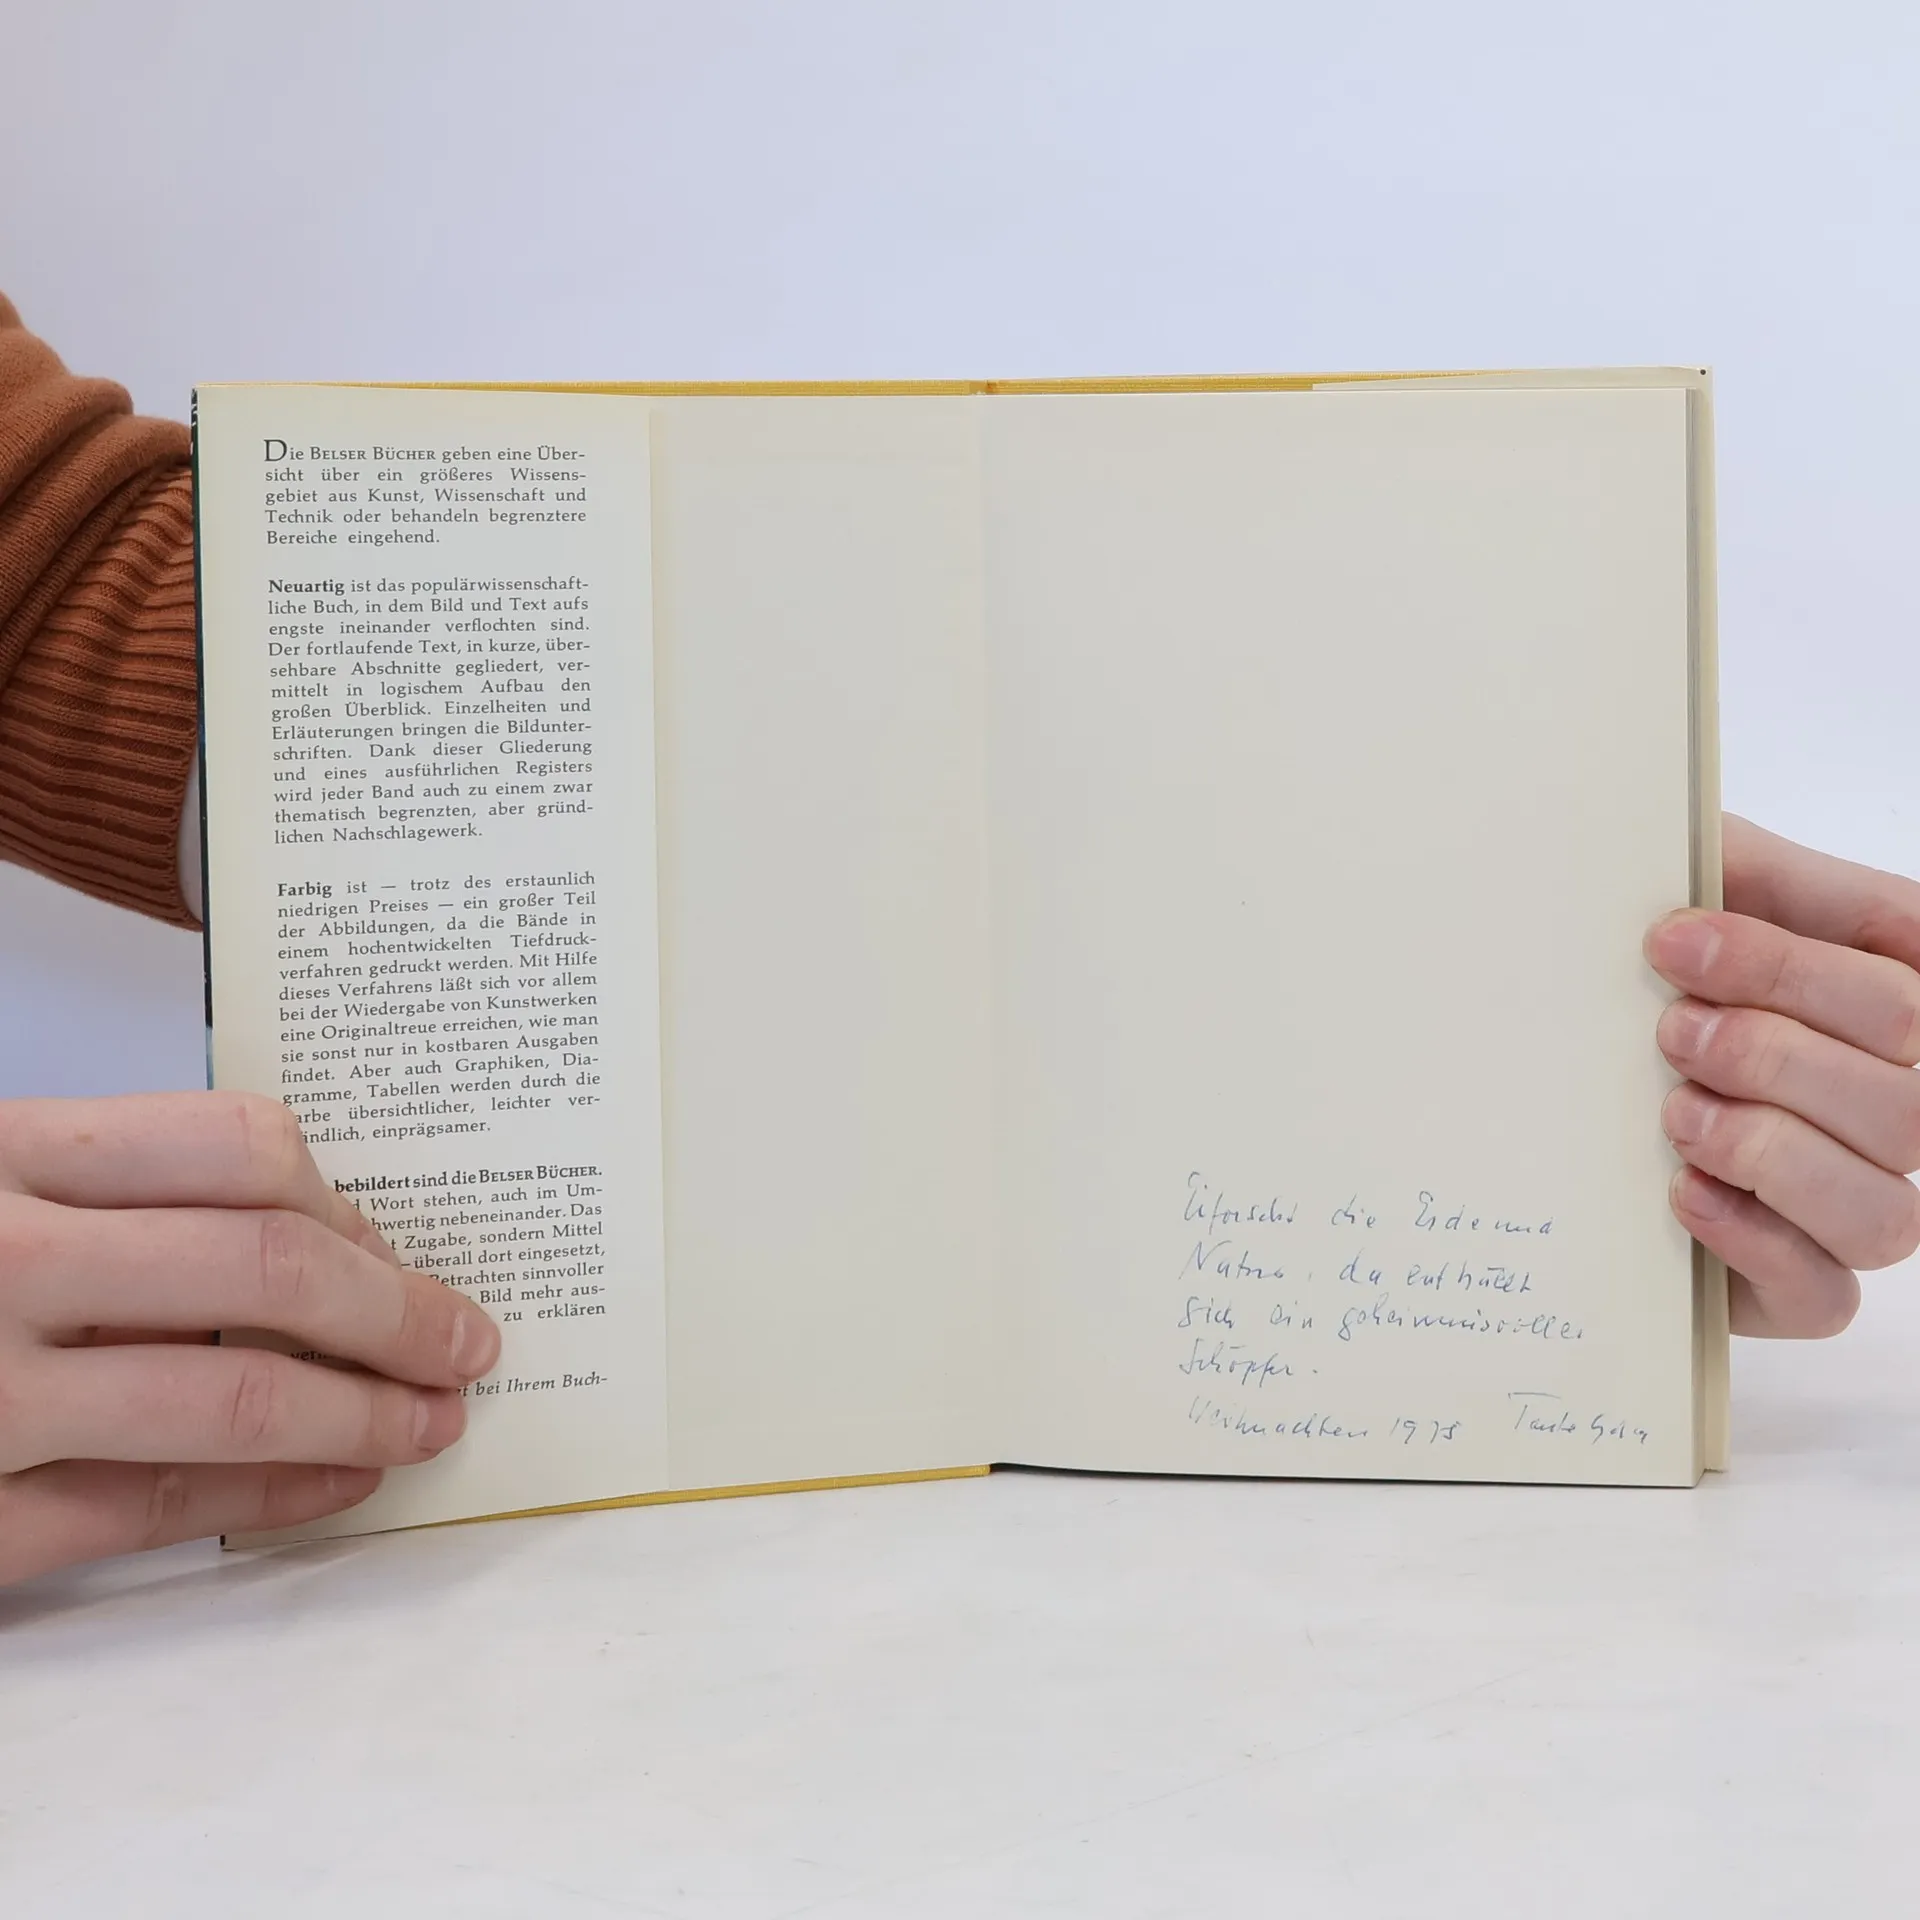 Die BELSER BÜCHER geben eine Über-
sicht über ein größeres Wissens-
gebiet aus Kunst, Wissenschaft und
Technik oder behandeln begrenztere
Bereiche eingehend.
Neuartig ist das populärwissenschaft-
liche Buch, in dem Bild und Text aufs
engste ineinander verflochten sind.
Der fortlaufende Text, in kurze, über-
sehbare Abschnitte gegliedert, ver-
mittelt in logischem Aufbau den
großen Überblick. Einzelheiten und
Erläuterungen bringen die Bildunter-
schriften. Dank dieser Gliederung
und eines ausführlichen Registers
wird jeder Band auch zu einem zwar
thematisch begrenzten, aber gründ-
lichen Nachschlagewerk.
Farbig ist — trotz des erstaunlich
niedrigen Preises — ein großer Teil
der Abbildungen, da die Bände in
einem hochentwickelten Tiefdruck-
verfahren gedruckt werden. Mit Hilfe
dieses Verfahrens läßt sich vor allem
bei der Wiedergabe von Kunstwerken
eine Originaltreue erreichen, wie man
sie sonst nur in kostbaren Ausgaben
findet. Aber auch Graphiken, Dia-
gramme, Tabellen werden durch die
arbe übersichtlicher, leichter ver-
ndlich, einprägsamer.
bebildert sind die BELSER BÜCHER.
d Wort stehen, auch im Um-
hwertig nebeneinander. Das
t Zugabe, sondern Mittel
— überall dort eingesetzt,
Betrachten sinnvoller
Bild mehr aus-
zu erklären
bei Ihrem Buch-
Erforscht die Erde und
Natur, da enthüllt
sich ein geheimnisvoller
Schöpfer.
Weihnachten 1975 Tante